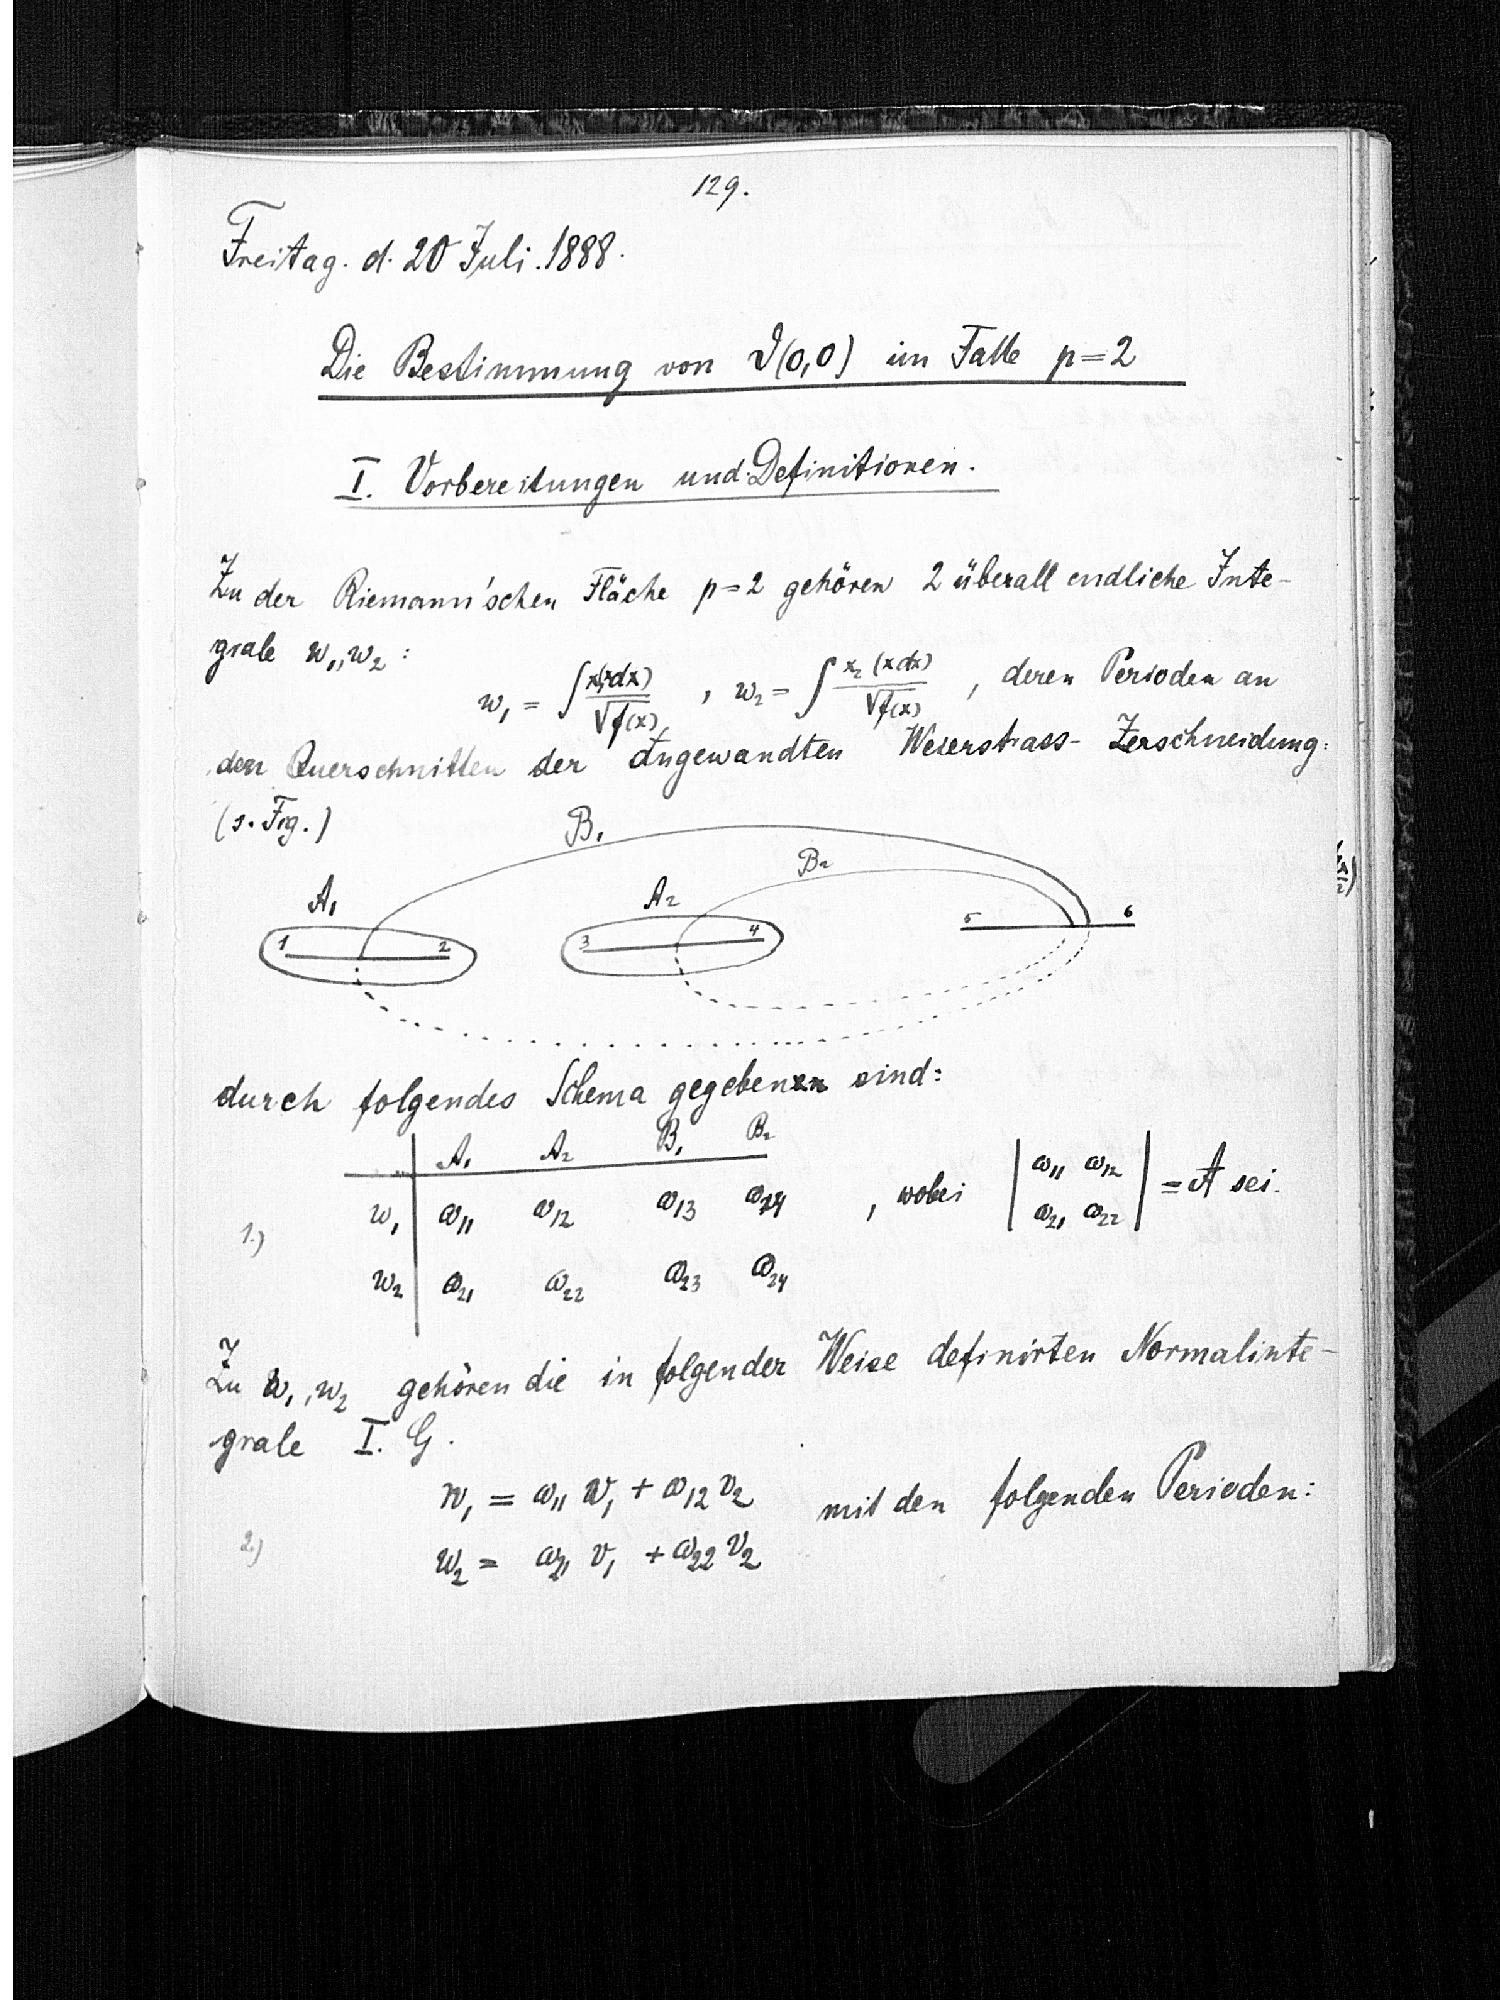 129.
Freitag. d. 20 Juli. 1888.
Die Bestimmung von ϑ(0,0) im Falle p=2
I. Vorbereitungen und Definitionen.
Zu der Riemann'schen Fläche p=2 gehören 2 überall endliche Inte-
grale w₁, w₂ :
w₁ = ∫ x₁(xdx)/√f(x) , w₂ = ∫ x₂(xdx)/√f(x) , deren Perioden an
den Querschnitten der angewandten Weierstrass- Zerschneidung:
(s. Fig.)
B₁
B₂
A₁ A₂
1 2 3 4 5 6
durch folgendes Schema gegeben sind:
A₁ A₂ B₁ B₂
1.) w₁ ω₁₁ ω₁₂ ω₁₃ ω₁₄ , wobei | ω₁₁ ω₁₂ ω₂₁ ω₂₂ | = A sei.
w₂ ω₂₁ ω₂₂ ω₂₃ ω₂₄
Zu w₁, w₂ gehören die in folgender Weise definirten Normalinte-
grale I. G.
w₁ = ω₁₁ v₁ + ω₁₂ v₂ mit den folgenden Perioden:
2.) w₂ = ω₂₁ v₁ + ω₂₂ v₂